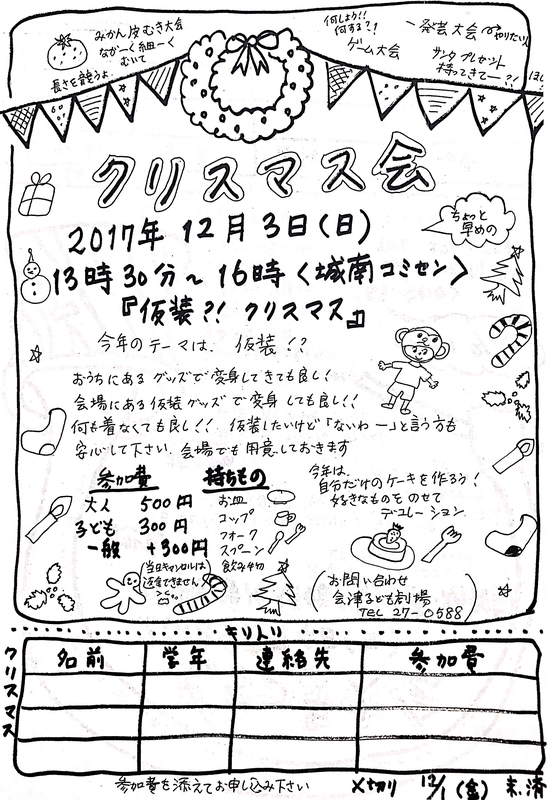 みかん皮むき大会
なが〜く細〜く
むいて
長さを競うよ
何しよう!!
何する?!
ゲーム大会
一発芸大会
やりたい人
サンタプレゼント
持ってきてー?!
クリスマス会
ちょっと
早めの
2017年 12月 3日(日)
13時30分〜16時〈城南コミセン〉
『仮装?! クリスマス』
今年のテーマは、仮装!?
おうちにあるグッズで変身してきても良し!
会場にある仮装グッズで変身しても良し!!
何も着なくても良し!! 仮装したいけど「ないわー」と言う方も
安心して下さい。会場でも用意しておきます
参加費
大人 500円
子ども 300円
一般 +300円
当日キャンセルは
返金できません
持ちもの
お皿
コップ
フォーク
スプーン
飲み物
今年は、
自分だけのケーキを作ろう!
好きなものをのせて
デコレーション
お問い合わせ
会津子ども劇場
TEL 27-0588
キリトリ
クリスマス
名前 学年 連絡先 参加費
参加費を添えてお申し込み下さい
〆切り 12/1(金) 未.済